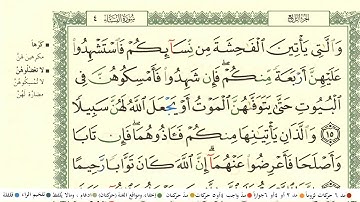 الجزء الرابع
سورة النساء ٤
وَالَّتِي يَأْتِينَ الْفَٰحِشَةَ مِن نِّسَآئِكُمْ فَاسْتَشْهِدُوا
عَلَيْهِنَّ أَرْبَعَةً مِّنكُمْ فَإِن شَهِدُوا فَأَمْسِكُوهُنَّ فِي
الْبُيُوتِ حَتَّىٰ يَتَوَفَّىٰهُنَّ الْمَوْتُ أَوْ يَجْعَلَ اللَّهُ لَهُنَّ سَبِيلًا
١٥ وَالَّذَانِ يَأْتِيَٰنِهَا مِنكُمْ فَـَٔاذُوهُمَا فَإِن تَابَا
وَأَصْلَحَا فَأَعْرِضُوا عَنْهُمَآ إِنَّ اللَّهَ كَانَ تَوَّابًا رَّحِيمًا
كرهاً
مكرهين لهنّ
لا تعضلوهنّ
مضارّة لهنّ